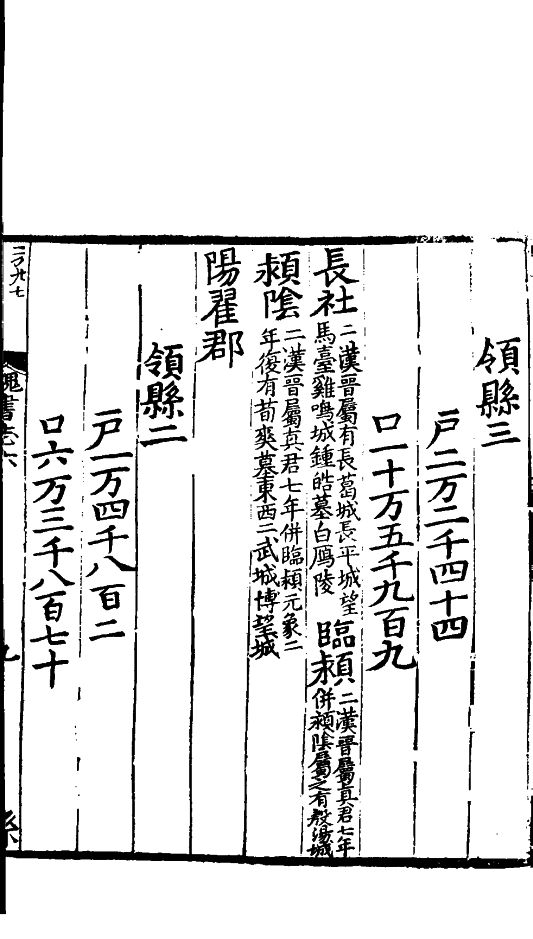 領縣三
戶二万二千四十四
口一十万五千九百九
長社二漢晉屬有長葛城長平城望
馬臺雞鳴城鍾皓墓白鴈陵
臨潁二漢晉屬真君七年
併潁陰屬之有殷湯城
潁陰二漢晉屬真君七年併臨潁元象二
年復有荀爽墓東西二武城博望城
陽翟郡
領縣二
戶一万四千八百二
口六万三千八百七十
魏書志六
九